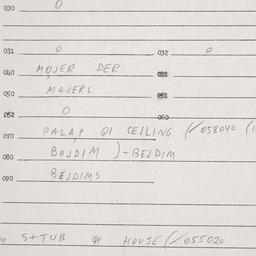 030 0
031 0 032 0
040 MAJER DER
050 MAJERL
052 0 060
070 PALAP QI CEILING (/058040
080 BOJDIM )-BEJDIM
090 BEJDIMS
STUB QI HOUSE (/055020